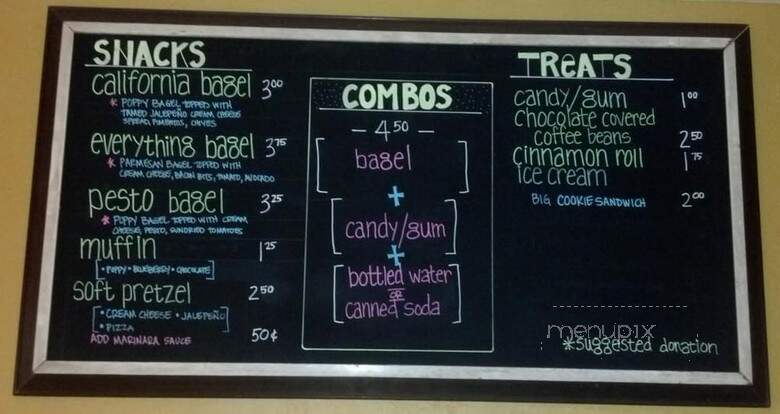 SNACKS
california bagel 3.00
* POPPY BAGEL TOPPED WITH
TAMED JALEPEÑO CREAM CHEESE
SPREAD, PIMENTOS, CHIVES
everything bagel 3.75
* PARMESAN BAGEL TOPPED WITH
CREAM CHEESE, BACON BITS, TOMATO, AVOCADO
pesto bagel 3.25
* POPPY BAGEL TOPPED WITH CREAM
CHEESE, PESTO, SUNDRIED TOMATOES
muffin 1.25
[• POPPY • BLUEBERRY • CHOCOLATE]
soft pretzel 2.50
[• CREAM CHEESE • JALEPEÑO
• PIZZA]
ADD MARINARA SAUCE 50¢
COMBOS
— 4.50 —
[bagel]
+
[candy/gum]
+
[bottled water
OR
canned soda]
TREATS
candy/gum 1.00
chocolate covered
coffee beans 2.50
cinnamon roll 1.75
ice cream
BIG COOKIE SANDWICH 2.00
menupix
*suggested donation